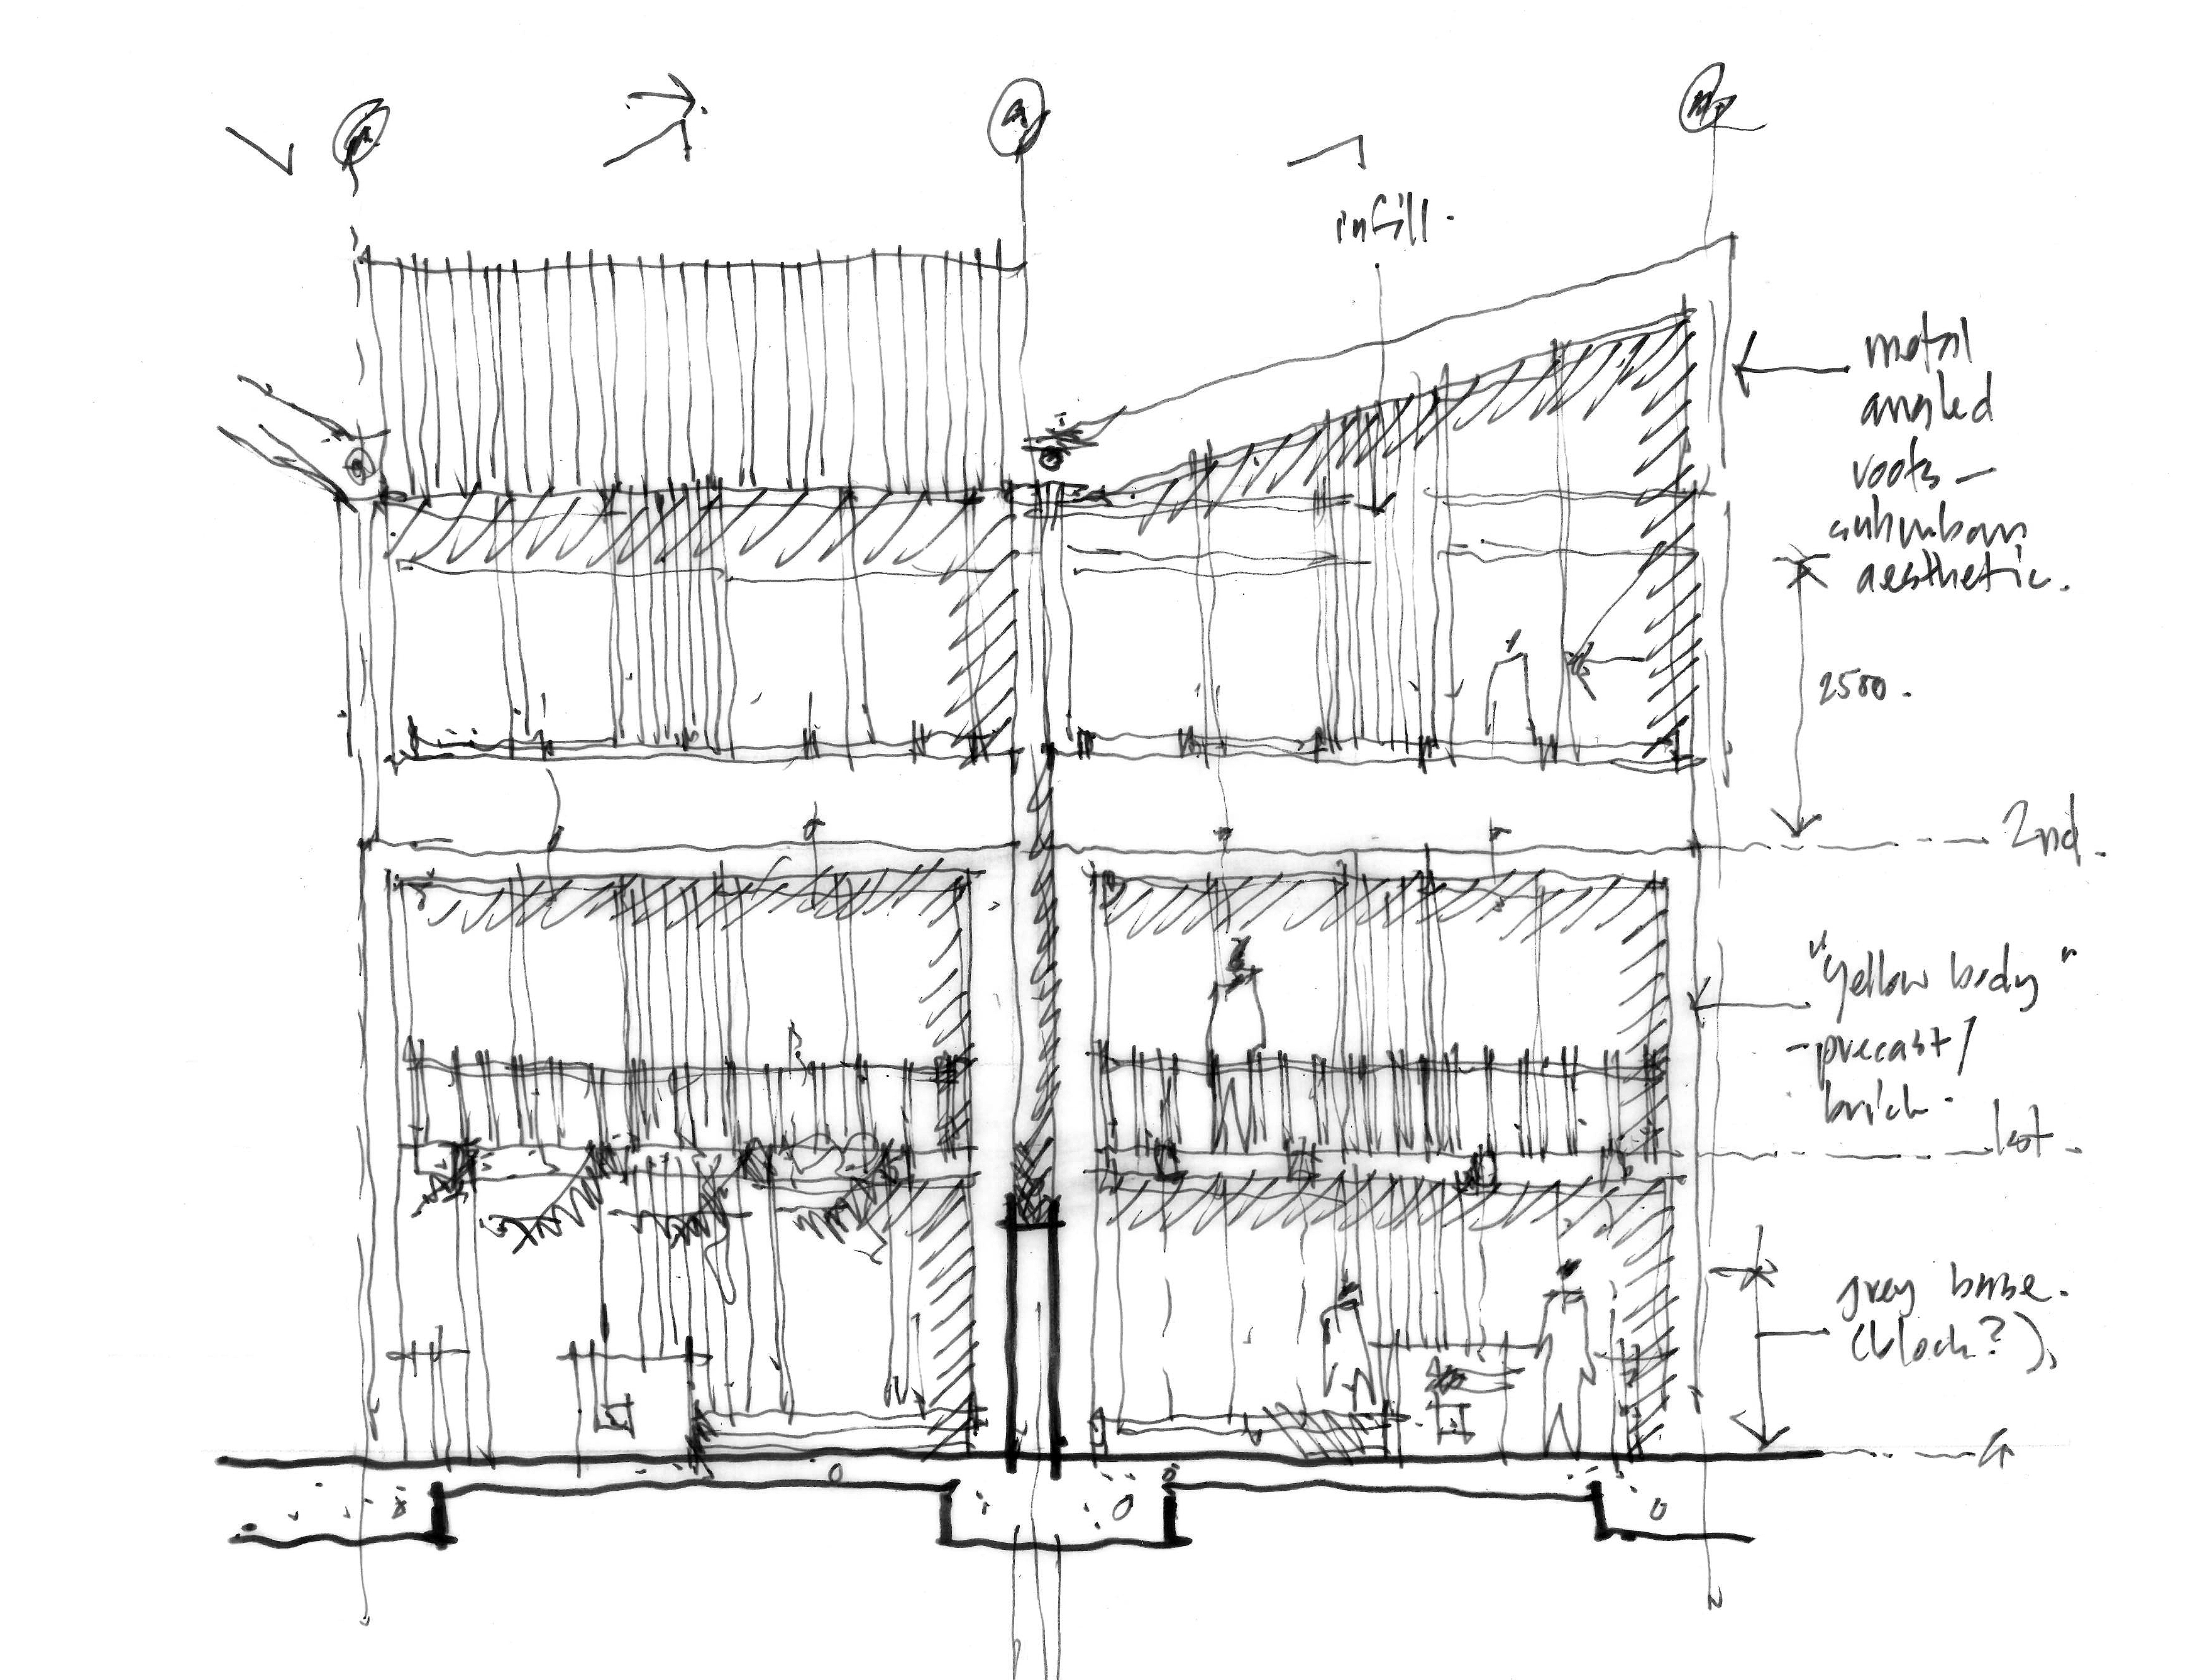 infill.
metal
angled
roofs –
suburban
aesthetic.
2500.
2nd.
"yellow body"
- precast/
brick.
1st.
grey base.
(block?).
G